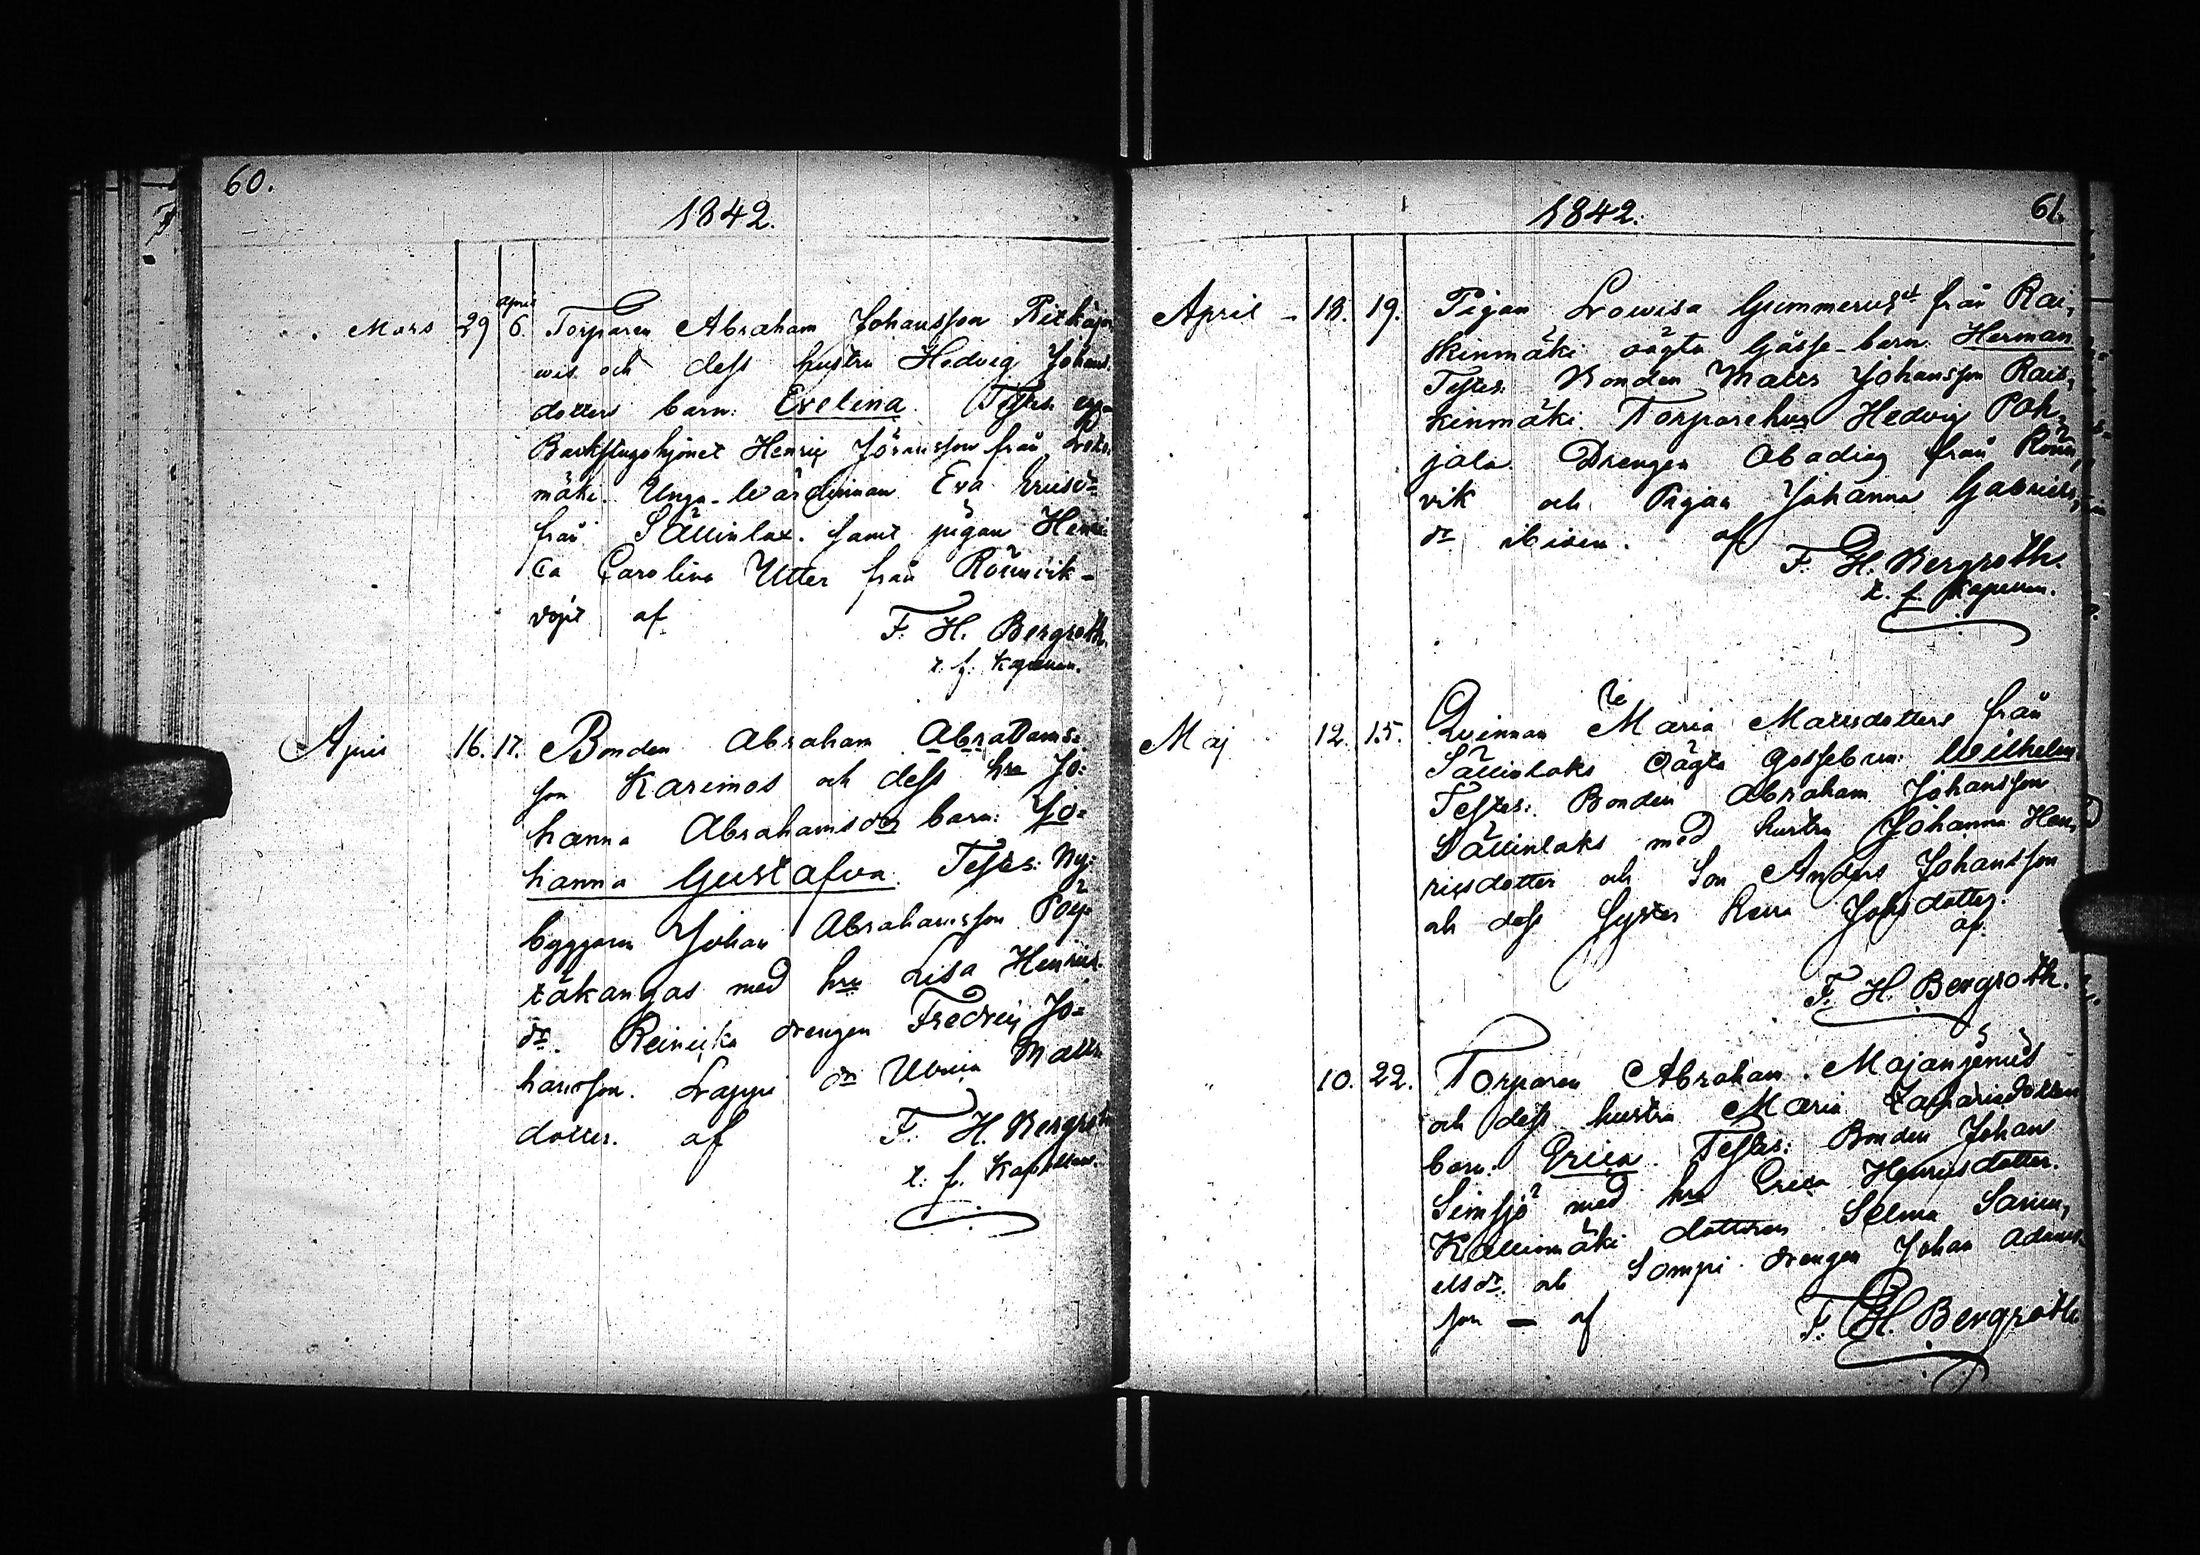 60.
1842.
Mars 29 april 6. Torparen Abraham Johansson
wis och dess hustru Hedvig Johans
dotters barn: Evelina. Testes
Backstugohjonet Henric Göransson från
mäki. Unga-Wärdinnan Eva
från Sällinlax. samt pigan Henri
ca Carolina Utter från Rönnvik-
döpt af
F. H. Bergroth.
t. f. Kapellan.
April 16. 17. Bonden Abraham Abrahams-
son Karimos och dess hru Jo-
hanna Abrahamsdr barn: Jo-
hanna Gustafva. Testes: Ny-
byggaren Johan Abrahamsson Pöy-
täkangas med hru Lisa Henrics
dr. Reinicka drengen Fredric Jo-
hansson. Lappi dr Ulrica Matts
dotter. af
F. H. Bergroth
t. f. Kapellan.
1842.
61.
April - 18. 19. Pigan Lowisa Gummerus från Rai-
skinmäki oägta Gosse-barn. Herman
Testes. Bonden Matts Johansson Rais-
kinmäki. Torparehus Hedvig Poh-
jala. Drengen Abadias från Rönn-
vik och Pigan Johanna Gabriels-
dr ibiden. af
F. H. Bergroth.
t. f. Kapellan.
Maj 12. 15. Qvinnan Maria Mattsdotters från
Sällinlaks oägta Gossebarn: Wilhelm
Testes: Bonden Abraham Johansson
Sällinlaks med hustru Johanna Hen-
ricsdotter och Son Anders Johansson
och dess syster Johsdotter.
af
F. H. Bergroth.
10. 22. Torparen Abraham Majanjemis
och dess hustru Maria Zachariædotters
barn: Erica. Testes: Bonden Johan
Simsjö med hru Erica Henricsdotter.
Kallinmäki dottren Selma Samu-
elsdr. och Sompi drengen Johan Adams
son — af
F. H. Bergroth